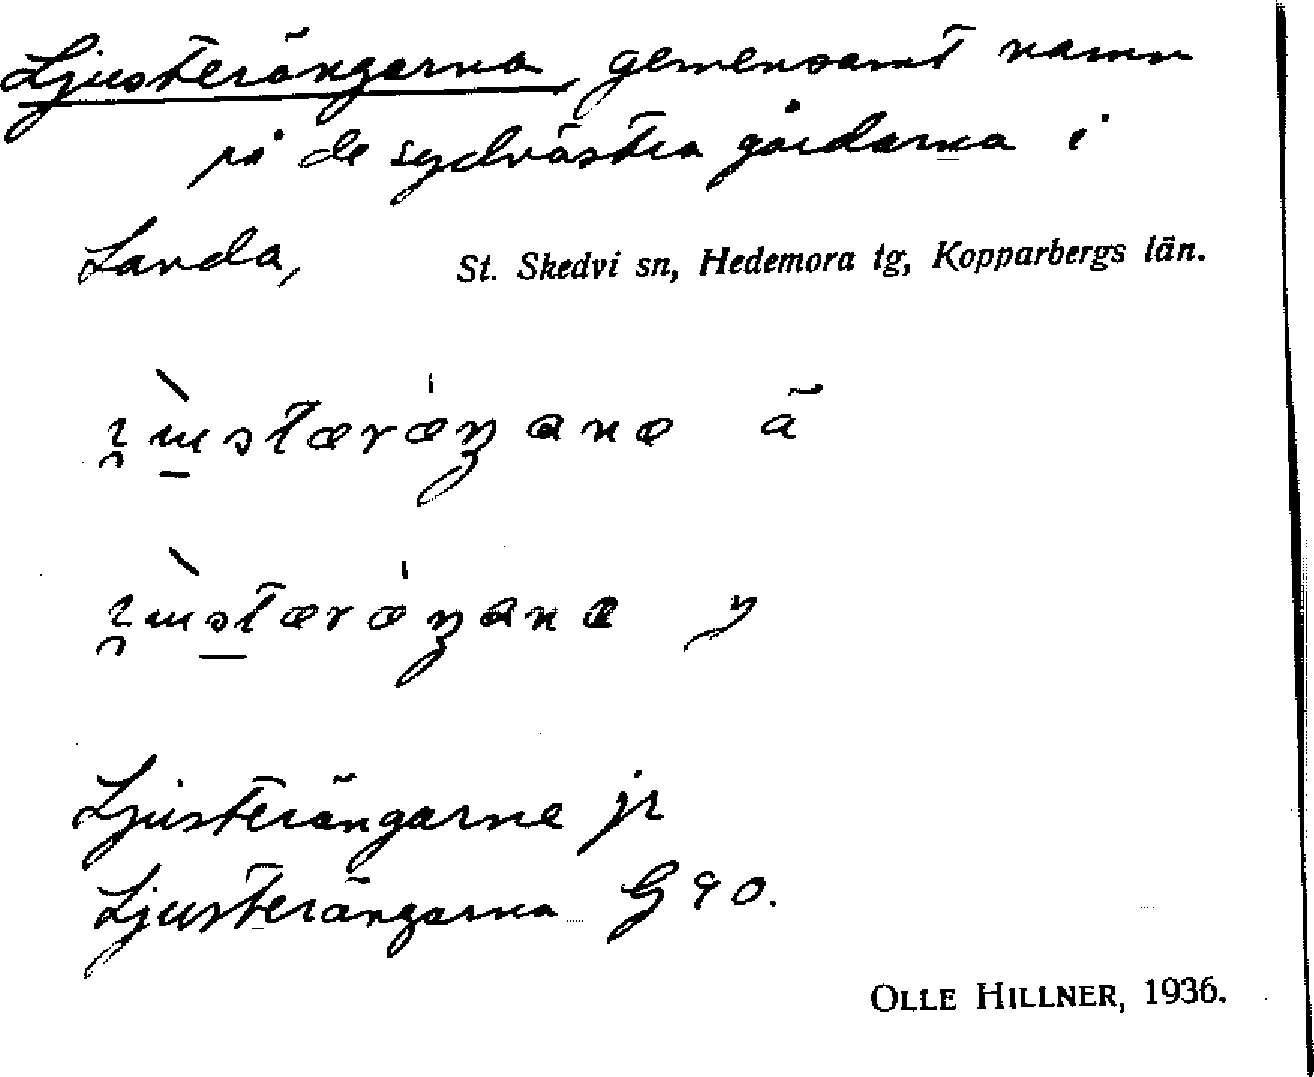 Ljusterängarna, gemensamt namn
på de sydvästra gårdarna i
Landa, St. Skedvi sn, Hedemora tg, Kopparbergs län.
ä
y
Ljusterängarne jr
Ljusterängarna G 90.
OLLE HILLNER, 1936.